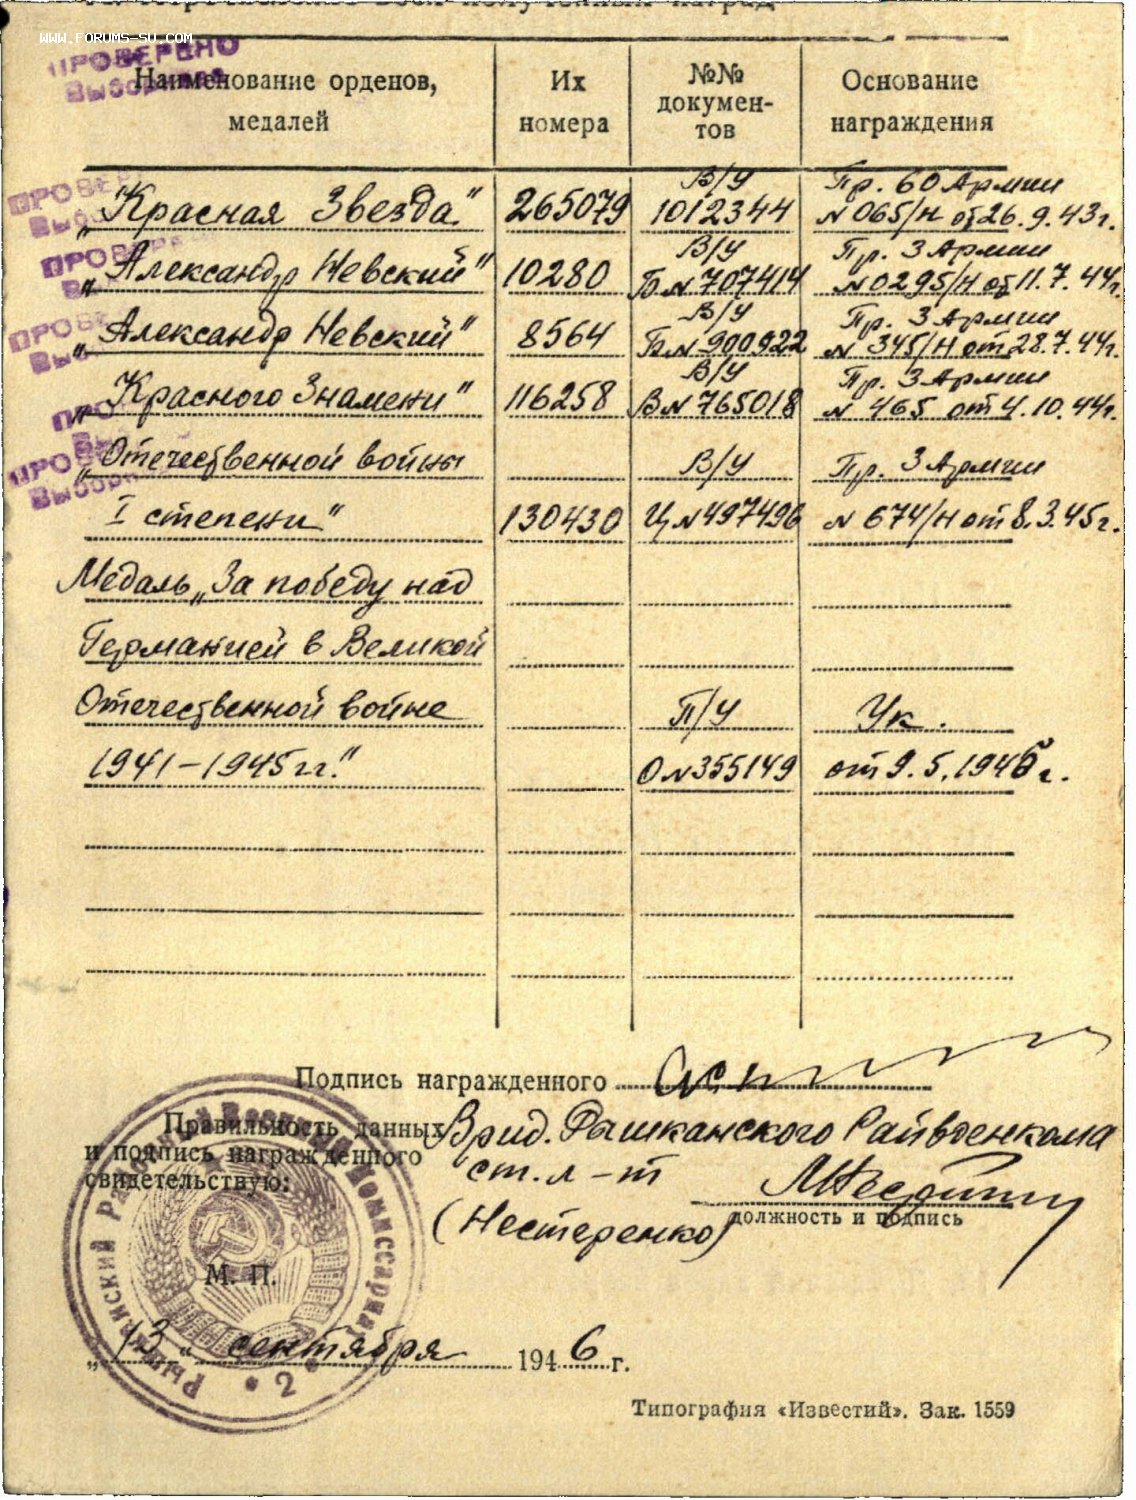 WWW.FORUMS-SU.COM
ПРОВЕРЕНО
Наименование орденов, медалей | Их номера | №№ документов | Основание награждения
„Красная Звезда“ | 265079 | В/У 1012344 | Пр. 60 Армии N 065/н от 26.9.43г.
„Александр Невский“ | 10280 | В/У Б N 707414 | Пр. 3 Армии N 0295/н от 11.7.44г.
„Александр Невский“ | 8564 | В/У Б N 900922 | Пр. 3 Армии N 345/н от 28.7.44г.
„Красного Знамени“ | 116258 | В/У В N 765018 | Пр. 3 Армии N 465 от 4.10.44г.
„Отечественной войны | В/У | Пр. 3 Армии
I степени“ | 130430 | Ц N 497496 | N 674/н от 8.3.45г.
Медаль „За победу над
Германией в Великой
Отечественной войне | П/У | Ук.
1941-1945 гг.“ | О N 355149 | от 9.5.1945г.
Подпись награжденного
Правильность данных
и подпись награжденного
свидетельствую:
Врид. Рышканского Райвоенкома
ст. л-т
(Нестеренко)
должность и подпись
М. П.
„13“ сентября 1946 г.
2
Типография «Известий». Зак. 1559